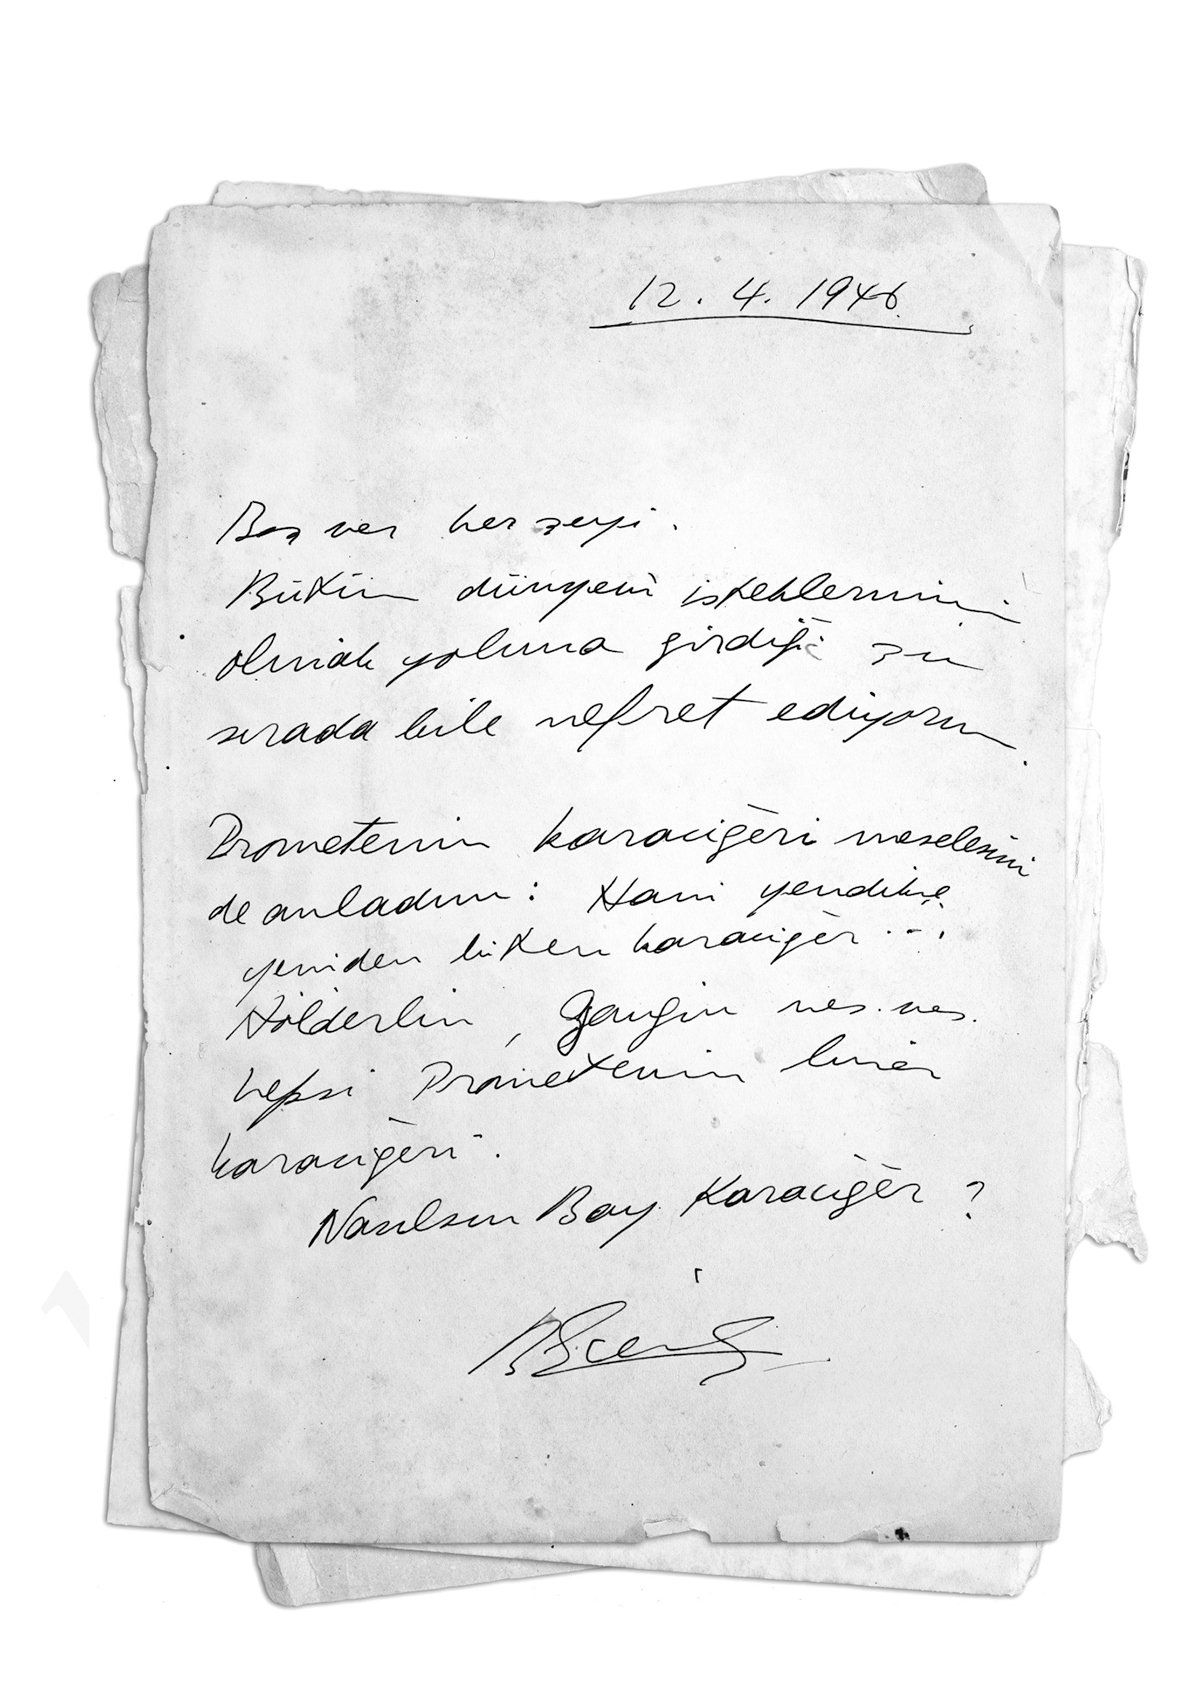 12.4.1946
Boş ver her şeyi.
Bütün dünyevî isteklerimin
olmak yoluna girdiği şu
sırada bile nefret ediyorum.
Prometenin karaciğeri meselesini
de anladım: Hani yendikçe
yeniden biten karaciğer...
Hölderlin, Gaugin ves. ves.
hepsi Prometenin birer
karaciğeri.
Nasılsın Bay Karaciğer?